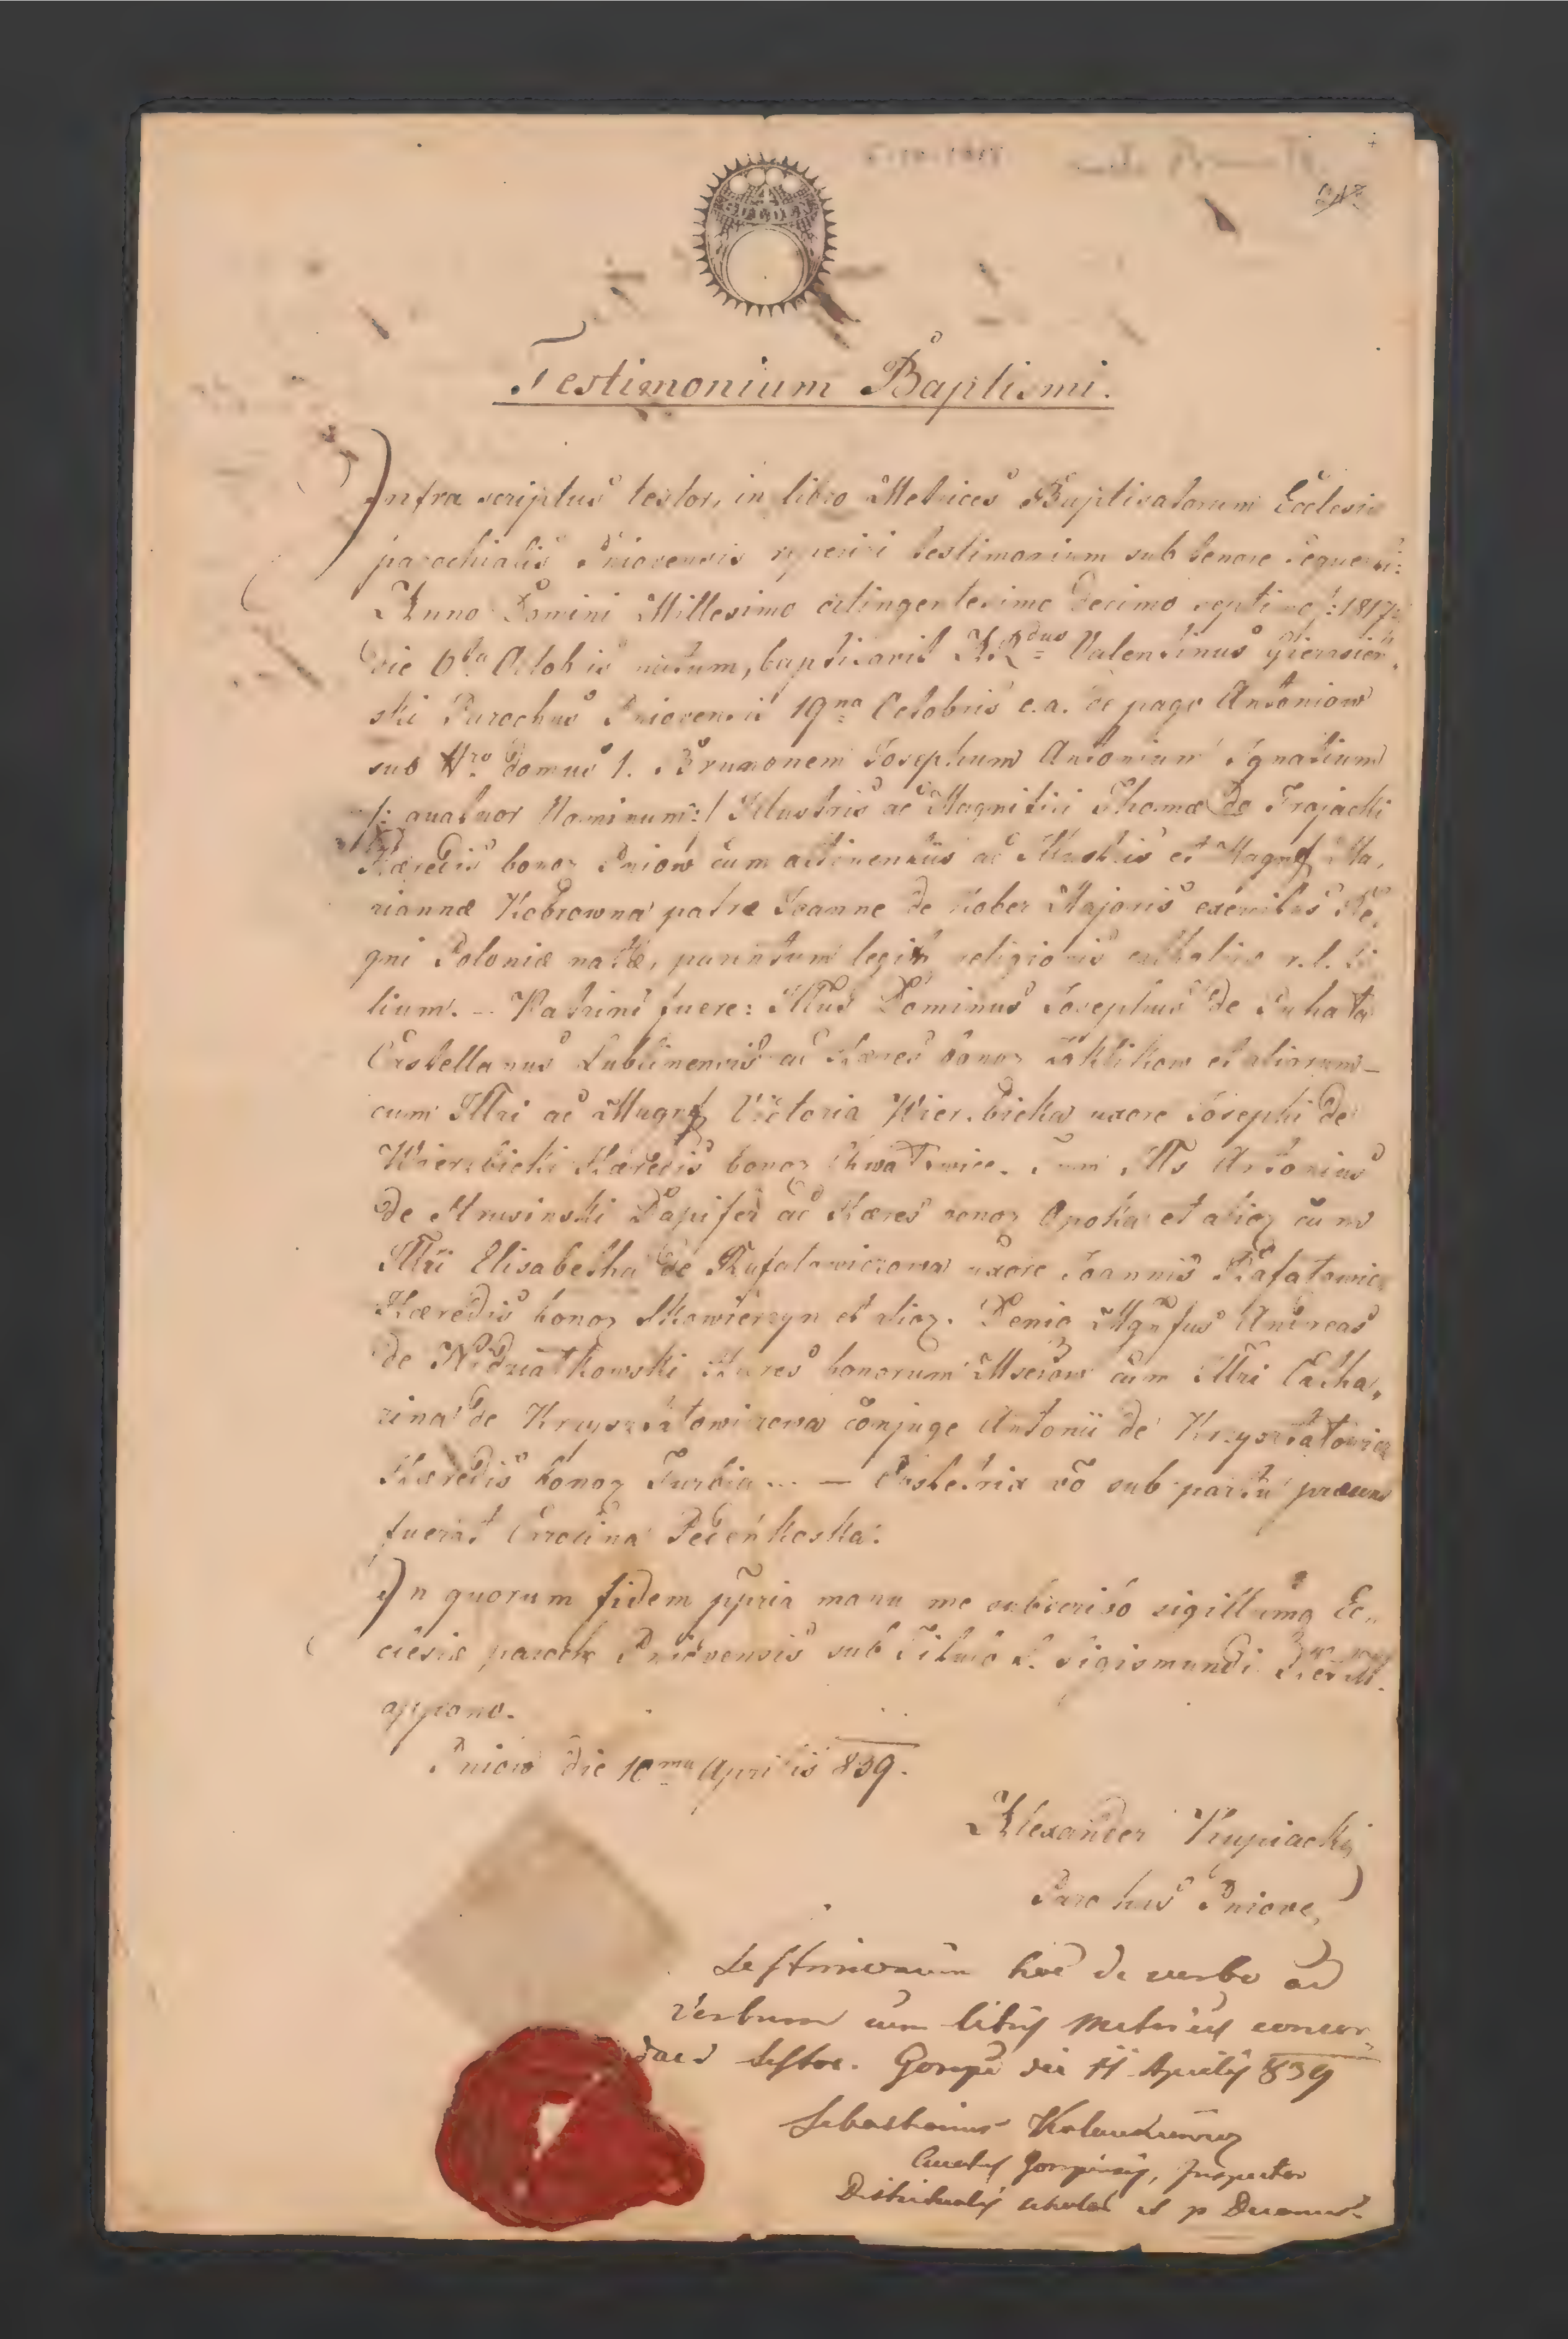 Testimonium Baptismi.
Infra scriptus testor, in libro Metrices Baptisatorum Ecclesiæ
parochialis Pniovensis reperiri testimonium sub tenore sequenti:
Anno Domini Millesimo octingentesimo decimo septimo /:1817:
die 6ta Octobris natum, baptisavit ARdus Valentinus
ski Parochus Pniovensis 19na Octobris e.a. de pago Antoniow
sub Nro domus 1. Brunonem Josephum Antonium Ignatium
/: quatuor Nominum:/ Illustris ac Magnifici Thomæ de Trojacki
Hæredis bonoz Pniow cum attinentiis ac Illustris et Magnf Ma,
riannæ Kobrowna patre Joanne de Kober Majoris exercitus Re,
gni Poloniæ natæ, parentum legit religionis catholicæ r.l. fi
lium. — Patrini fuere: Illus Dominus Josephus de
Castellanus Lublinensis ac Hæres bonoz Zaklikow et aliarum —
cum Illri ac Magnf Victoria Wierzbicka uxore Josephi de
Wierzbicki Hæredis bonoz Chwałowice. Tum Ills Antonius
de Dapifer ac Hæres bonoz Opoka et alioz cum
Illri Elisabetha de Rafałowiczowa uxore Joannis Rafałowicz
Hæredis bonoz Skowierzyn et alioz. Deniq Mgnfus Andreas
de Hæres bonorum cum Illri Catha,
rina de Krzyształowiczowa conjuge Antonii de Krzyształowicz
Hæredis bonoz Turbia ... — Obstetrix vo sub partu præsens
fuerat Carolina
In quorum fidem ppria manu me subscribo sigillumq Ec,,
clesiæ paroch Pniovensis sub Titulo S. Sigismundi
appono.
Pniow die 10ma Aprilis 839.
Alexander Krupiacki
Parochus Pniove,
Testimonium hoc de verbo ad
verbum cum libris Metrices concor,
dare testor. Gorzyce die 11 Aprilis 839
Sebastianus
Curatus Inspector
Districtualis scholar et p Decanus.